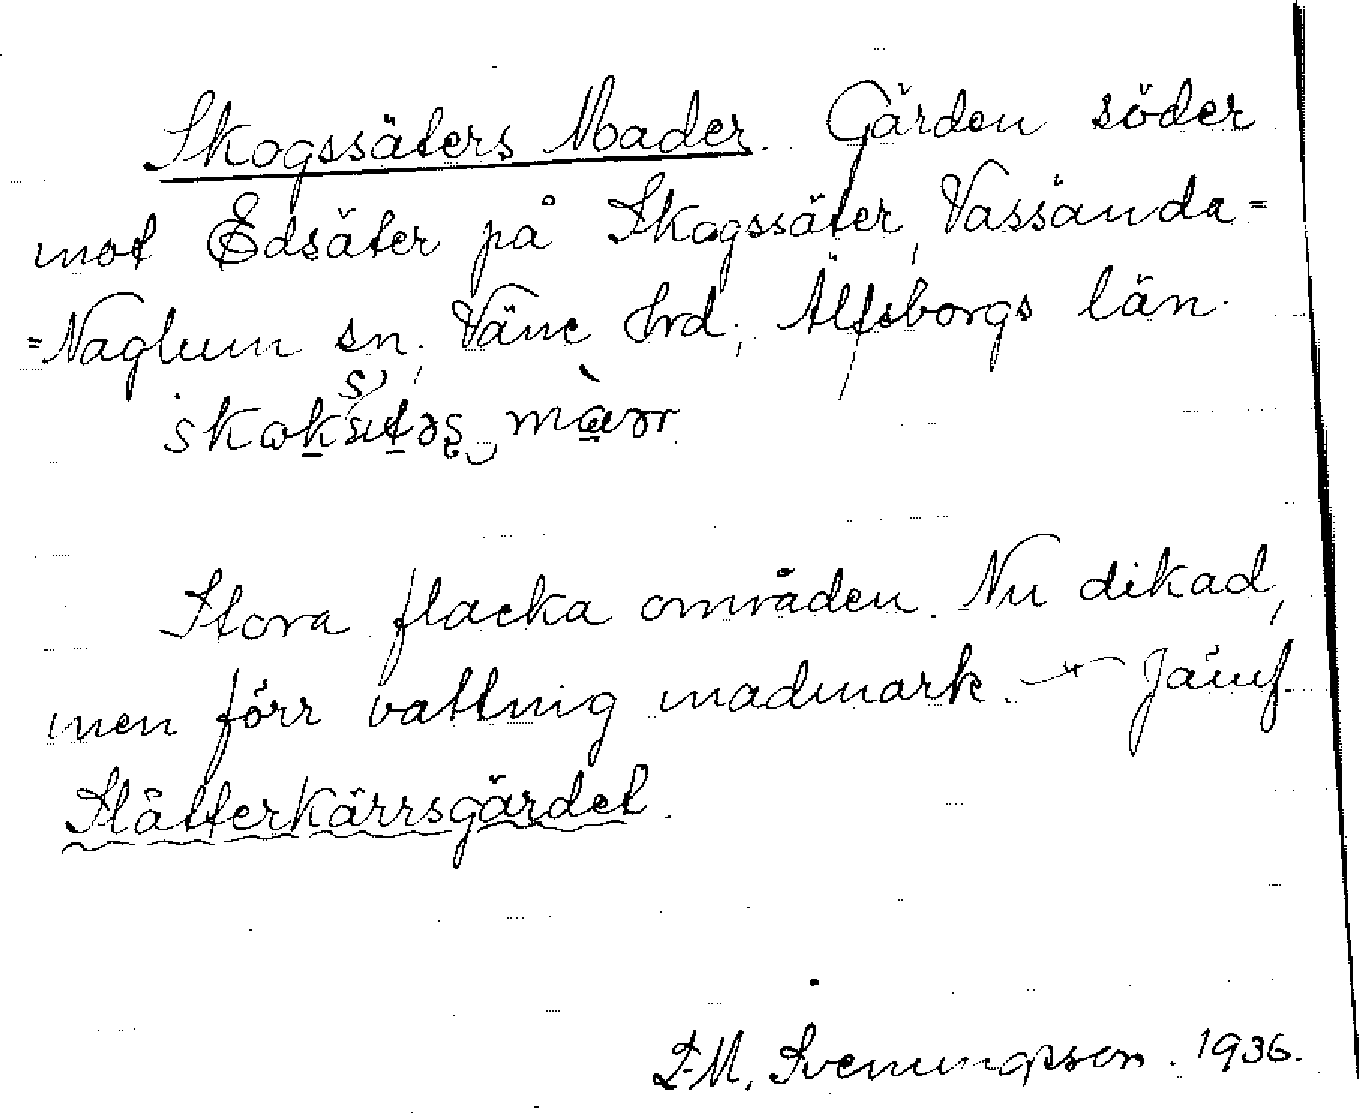 Skogssäters Mader. Gärden söder
mot Edsäter på Skogssäter, Vassända=
=Naglum sn, Väne hrd, Älfsborgs län.
skoksätəs, màər.
Stora flacka områden. Nu dikad,
men förr vattnig madmark. — Jämf.
Slåtterkärrsgärdet.
D. M. Svenungsson. 1936.